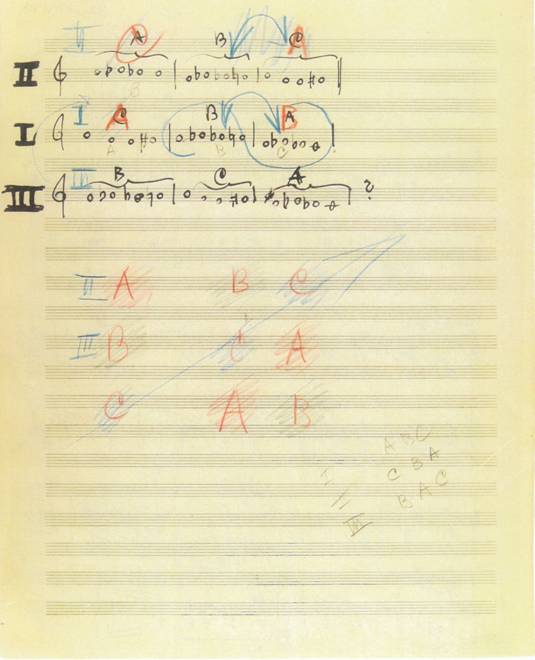 II A B C A
II
I C A B A B
I
III B C A ?
III
II A B C
III B C A
C A B
I A B C
II C B A
III B A C